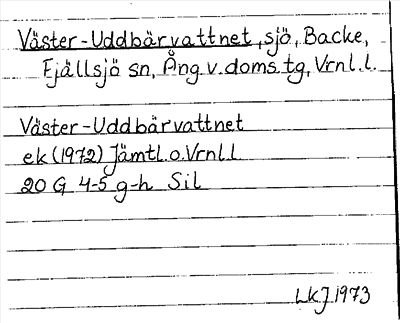 Väster-Uddbärvattnet, sjö, Backe,
Fjällsjö sn, Ång. v. doms. tg, Vrnl. l.
Väster-Uddbärvattnet
ek (1972) Jämtl. o. Vrnl. l
20 G 4-5 g-h Sil
LKJ 1973